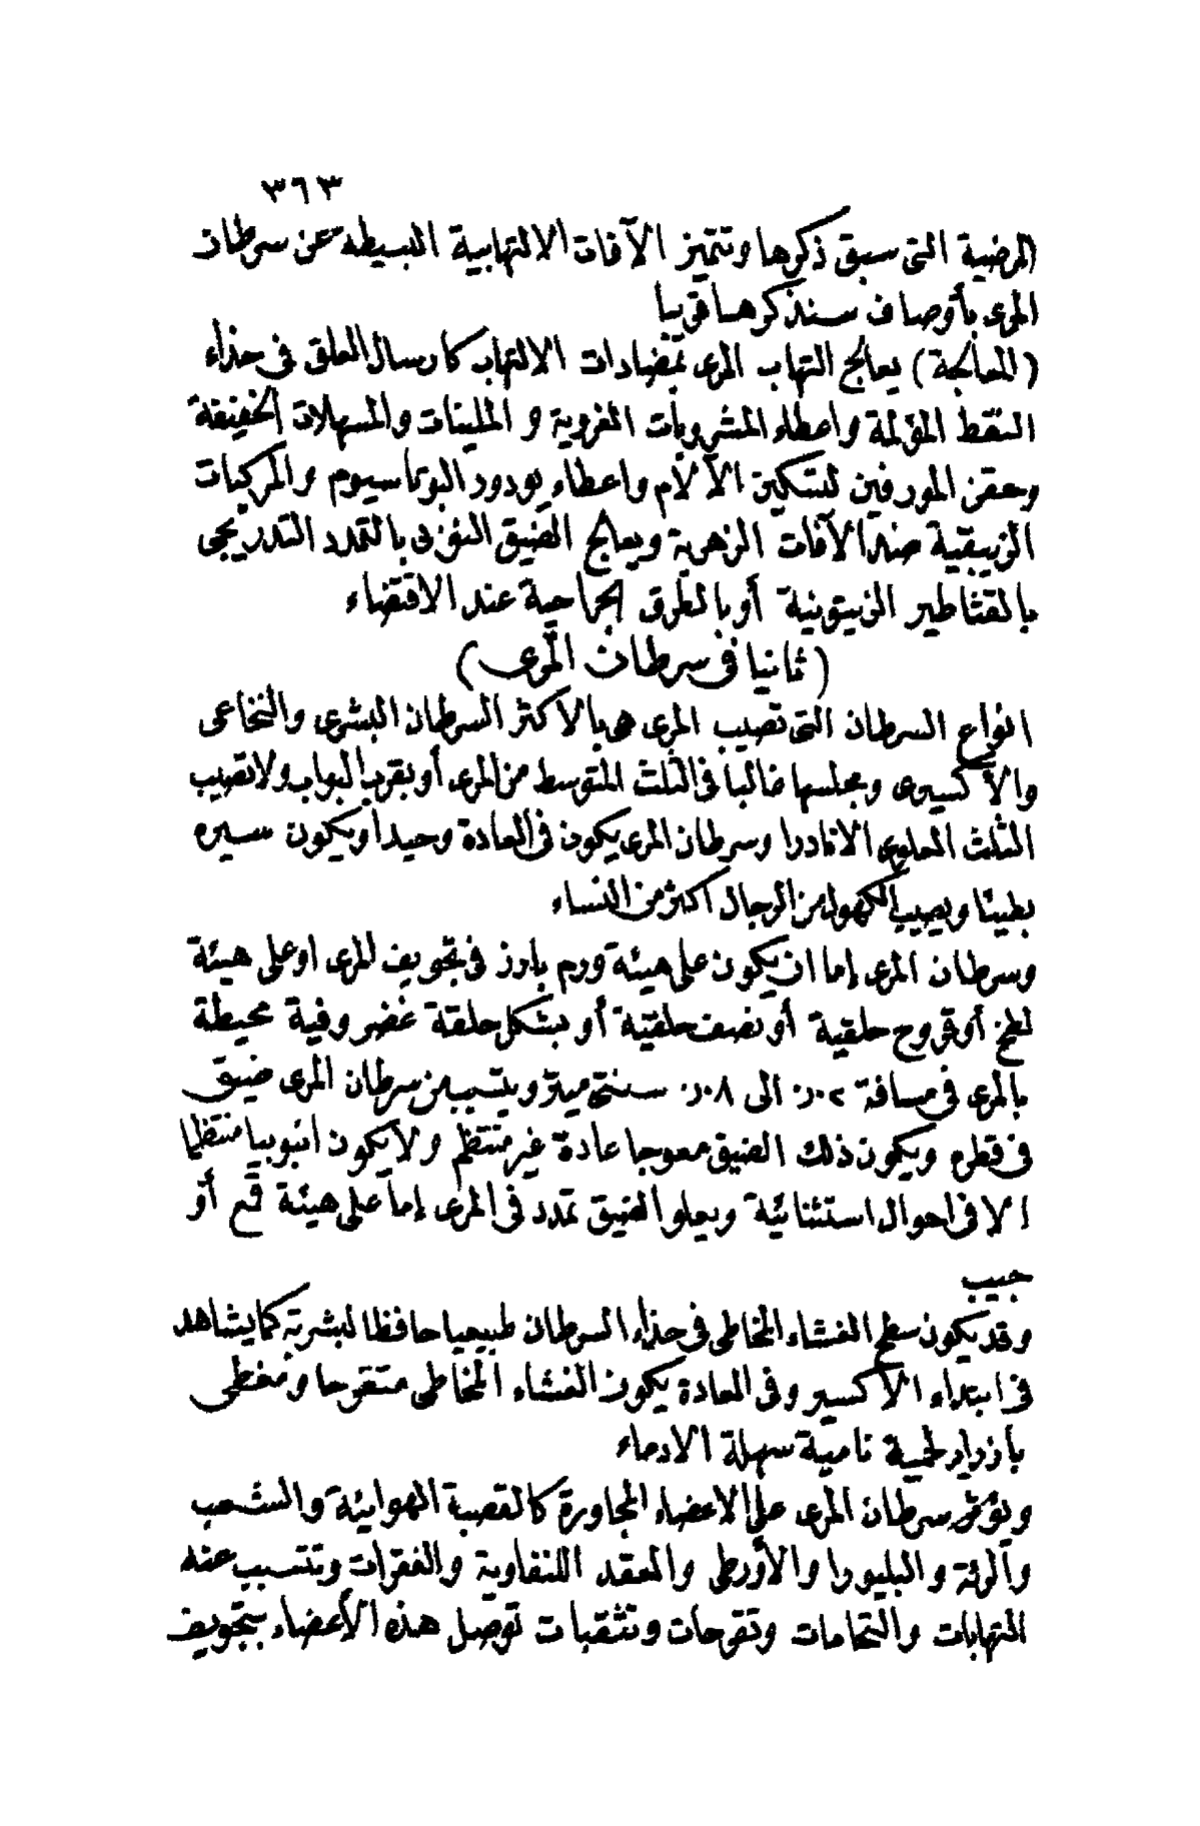 ٣٦٣
المرضية التى سبق ذكرها وتتميز الآفات الالتهابية البسيطة عن سرطان
المرى بأوصاف سنذكرها قريبا
(المعالجة) يعالج التهاب المرى بمضادات الالتهاب كارسال العلق فى حذاء
النقط المؤلمة واعطاء المشروبات الغروية و الملينات والمسهلات الخفيفة
وحقن المورفين لتسكين الآلام واعطاء يودور البوتاسيوم والمركبات
الزيبقية ضد الآفات الزهرية ويعالج الضيق النوفى بالتمدد التدريجى
بالقثاطير الزيتونية أو بالطرق الجراحية عند الاقتضاء
(ثانيا فى سرطان المرى)
انواع السرطان التى تصيب المرى هى بالأكثر السرطان البشرى والنخاعى
والأكسيرى ومجلسها غالبا فى الثلث المتوسط من المرى أو بقرب البواب ولا تصيب
الثلث العلوى الا نادرا وسرطان المرى يكون فى العادة وحيدا ويكون سيره
بطيئا ويصيب الكهول من الرجال اكثر من النساء
وسرطان المرى إما ان يكون على هيئة ورم بارز فى تجويف المرى او على هيئة
لطخ أو قروح حلقية أو نصف حلقية أو بشكل حلقة غضروفية محيطة
بالمرى فى مسافة ٠٢ر٠ الى ٠٨ر٠ سنتى ميتر ويتسبب من سرطان المرى ضيق
فى قطره ويكون ذلك الضيق معوجا عادة غير منتظم ولا يكون انبوبيا منتظما
الا فى احوال استثنائية ويعلو الضيق تمدد فى المرى إما على هيئة قمع أو
جيب
وقد يكون سطح الغشاء المخاطى فى حذاء السرطان طبيعيا حافظا لبشرته كما يشاهد
فى ابتداء الأكسير وفى العادة يكون الغشاء المخاطى متقرحا ومغطى
بازرار لحمية نامية سهلة الادماء
ويؤثر سرطان المرى على الاعضاء المجاورة كالقصبة الهوائية والشعب
والرئة والبليورا والأورطى والعقد اللنفاوية والفقرات وتتسبب عنه
التهابات والتحامات وتقرحات وتثقبات توصل هذه الأعضاء بتجويف